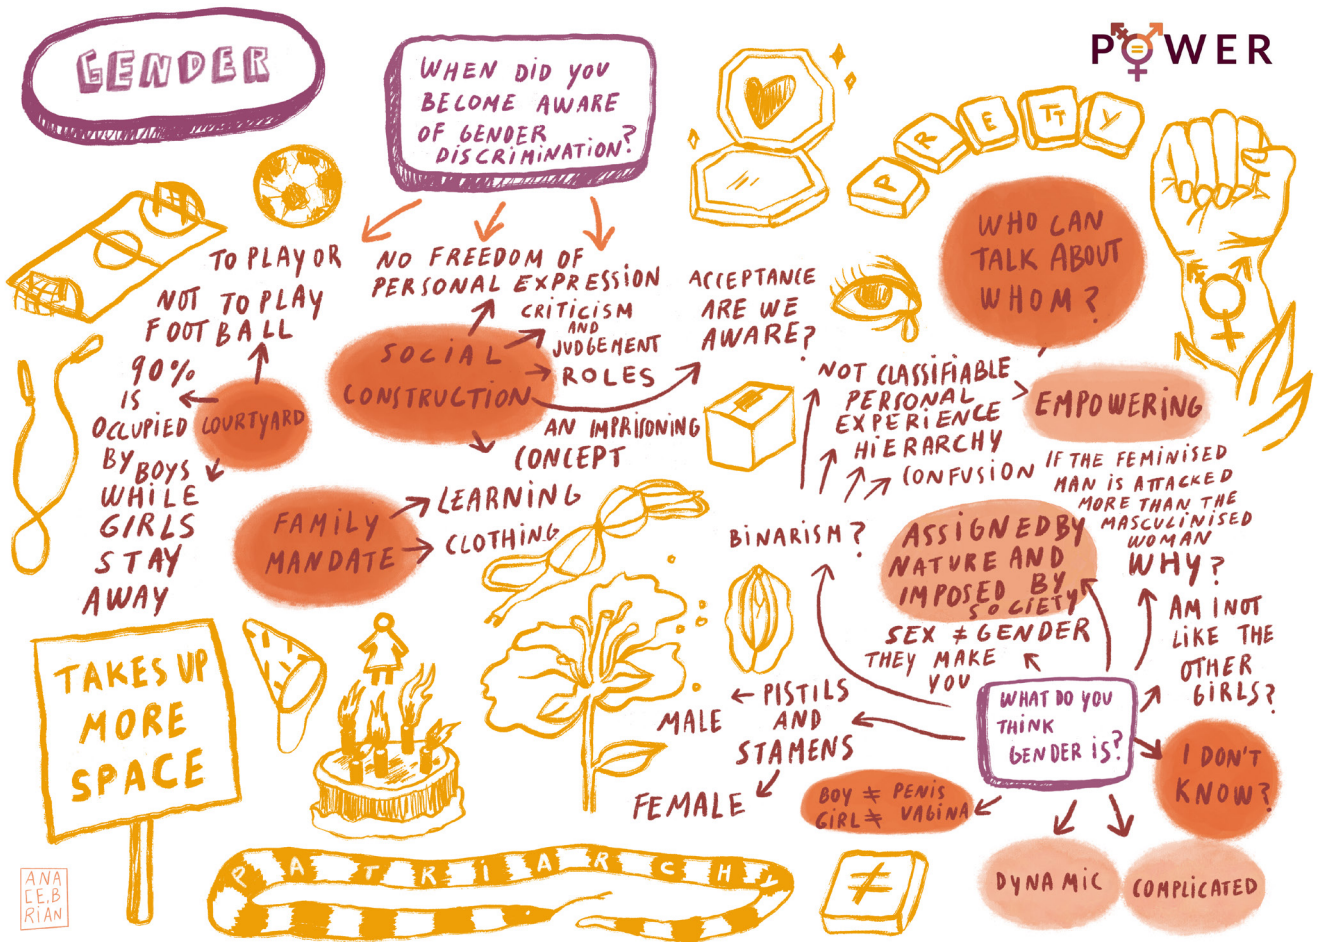 GENDER
WHEN DID YOU
BECOME AWARE
OF GENDER
DISCRIMINATION?
POWER
PRETTY
TO PLAY OR
NOT TO PLAY
FOOTBALL
90%
IS
OCCUPIED
BY BOYS
WHILE
GIRLS
STAY
AWAY
COURTYARD
NO FREEDOM OF
PERSONAL EXPRESSION
CRITICISM
AND
JUDGEMENT
ROLES
SOCIAL
CONSTRUCTION
AN IMPRISONING
CONCEPT
ACCEPTANCE
ARE WE
AWARE?
FAMILY
MANDATE
LEARNING
CLOTHING
WHO CAN
TALK ABOUT
WHOM?
NOT CLASSIFIABLE
PERSONAL
EXPERIENCE
HIERARCHY
CONFUSION
EMPOWERING
IF THE FEMINISED
MAN IS ATTACKED
MORE THAN THE
MASCULINISED
WOMAN
WHY?
BINARISM?
ASSIGNED BY
NATURE AND
IMPOSED BY
SOCIETY
SEX ≠ GENDER
THEY MAKE
YOU
AM I NOT
LIKE THE
OTHER
GIRLS?
WHAT DO YOU
THINK
GENDER IS?
PISTILS
AND
STAMENS
MALE
FEMALE
I DON'T
KNOW?
BOY ≠ PENIS
GIRL ≠ VAGINA
DYNAMIC
COMPLICATED
TAKES UP
MORE
SPACE
PATRIARCHY
≠
ANA
CE.B
RIAN